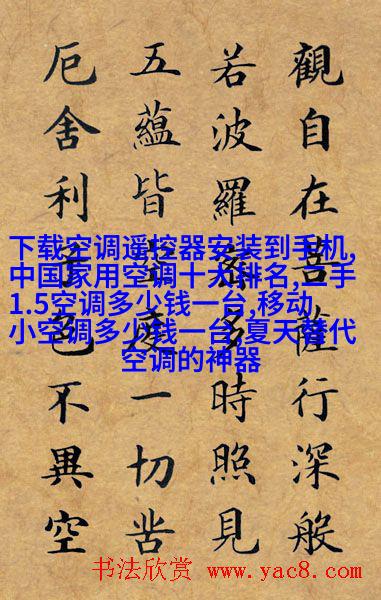 觀自在菩薩行深般
若波羅多時照見
五蘊皆空度一切苦
厄舍利子色不異空
下载空调遥控器安装到手机,
中国家用空调十大排名,二手
1.5空调多少钱一台,移动
小空调多少钱一台,夏天替代
空调的神器
书法欣赏 www.yac8.com